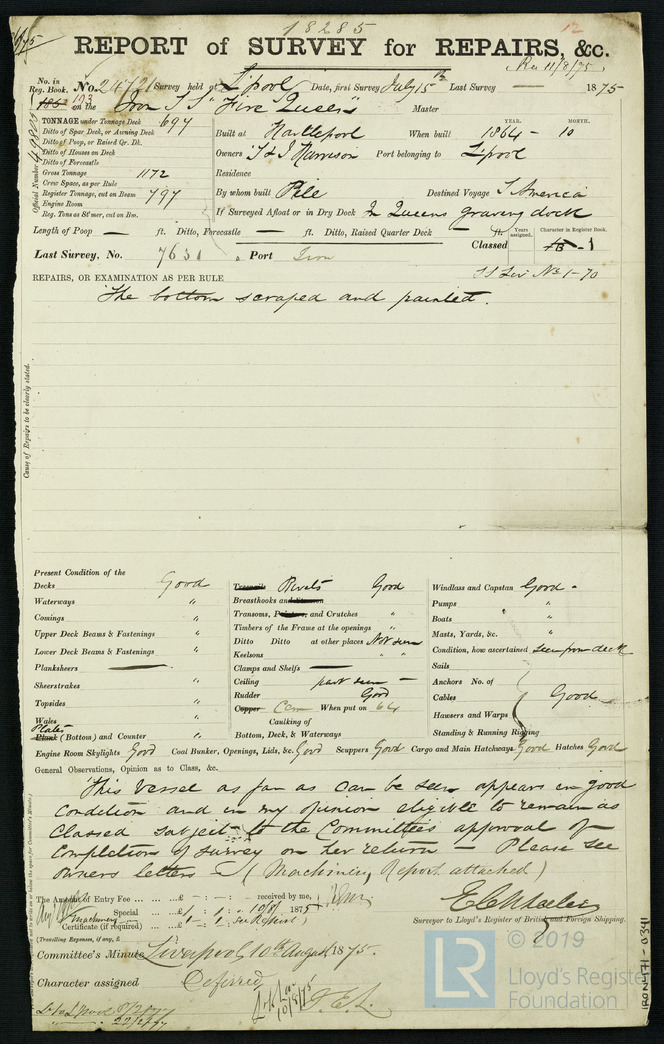 18285
12
REPORT of SURVEY for REPAIRS, &c.
Rec 11/8/75
No. in Reg. Book. No. 24721 Survey held at L'pool Date, first Survey July 15th Last Survey — 1875
193 on the Iron S S "Fire Queen" Master
TONNAGE under Tonnage Deck 697
Ditto of Spar Deck, or Awning Deck
Ditto of Poop, or Raised Qr. Dk.
Ditto of Houses on Deck
Ditto of Forecastle
Gross Tonnage 1172
Crew Space, as per Rule
Register Tonnage, cut on Beam 797
Engine Room
Reg. Tons as St'mer, cut on Bm.
Official Number
YEAR. MONTH.
Built at Hartlepool When built 1864 - 10
Owners T & J Harrison Port belonging to L'pool
Residence
By whom built Pile Destined Voyage S America
If Surveyed Afloat or in Dry Dock In Queens graving dock
Length of Poop — ft. Ditto, Forecastle — ft. Ditto, Raised Quarter Deck —
Years assigned. Character in Register Book.
Last Survey, No. 7631 Port Iron Classed
REPAIRS, OR EXAMINATION AS PER RULE
The bottom scraped and painted.
Cause of Repairs to be clearly stated.
Present Condition of the
Decks Good
Waterways "
Comings "
Upper Deck Beams & Fastenings "
Lower Deck Beams & Fastenings "
Planksheers —
Sheerstrakes "
Topsides "
Wales "
Plates
Plank (Bottom) and Counter "
Treenails Rivets Good
Breasthooks and Stemson "
Transoms, Pointers, and Crutches "
Timbers of the Frame at the openings "
Ditto Ditto at other places Not seen
Keelsons " "
Clamps and Shelfs —
Ceiling part seen —
Rudder Good
Copper Cem When put on 64
Caulking of
Bottom, Deck, & Waterways
Windlass and Capstan Good -
Pumps "
Boats " "
Masts, Yards, &c. "
Condition, how ascertained seen from deck
Sails
Anchors No. of
Cables Good
Hausers and Warps
Standing & Running Rigging
Engine Room Skylights Good Coal Bunker, Openings, Lids, &c. Good Scuppers Good Cargo and Main Hatchways Good Hatches Good
General Observations, Opinion as to Class, &c.
This vessel as far as can be seen appears in good
condition and in my opinion eligible to remain as
classed subject to the Committee's approval of
completion of survey on her return — Please see
owners letters — (Machinery Report attached)
The Amount of Entry Fee ... £ - : - : - received by me,
Special ... £1 : 1 : - 10/8/1875
Machinery
Certificate (if required) ... £1 - 1 - : see Report
(Travelling Expenses, if any, £
Surveyor to Lloyd's Register of British and Foreign Shipping.
Committee's Minute Liverpool, 10th August 1875.
Character assigned Deferred
10/8/75
IRON 471-0341
LR
© 2019
Lloyd's Register
Foundation